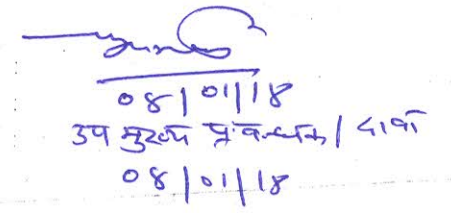 08/01/18
उप मुख्य प्रबन्धक / दावा
08/01/18